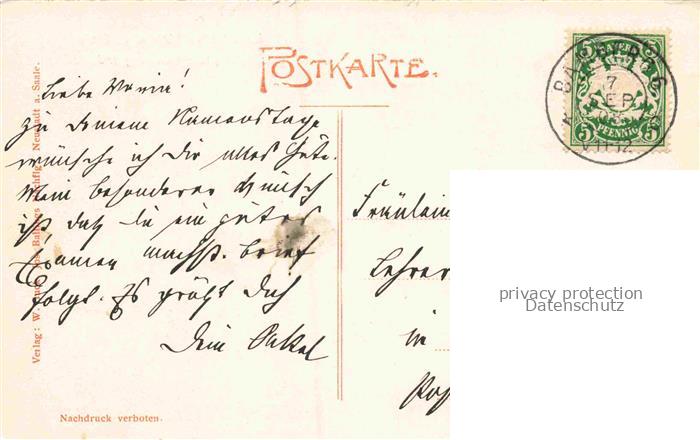 POSTKARTE.
BAYERN
5 5
PFENNIG
5 5
BAMBERG
7
SEP
V.11-12
Liebe Maria!
Zu Deinem Namenstage
wünsche ich Dir alles Gute.
Mein besonderer Wunsch
ist, daß Du ein gutes
Examen machst. Brief
folgt. Es grüßt Dich
Dein Onkel
Fräulein
Lehrer
in
Verlag: W. Neustadt a. Saale.
Nachdruck verboten.
privacy protection
Datenschutz